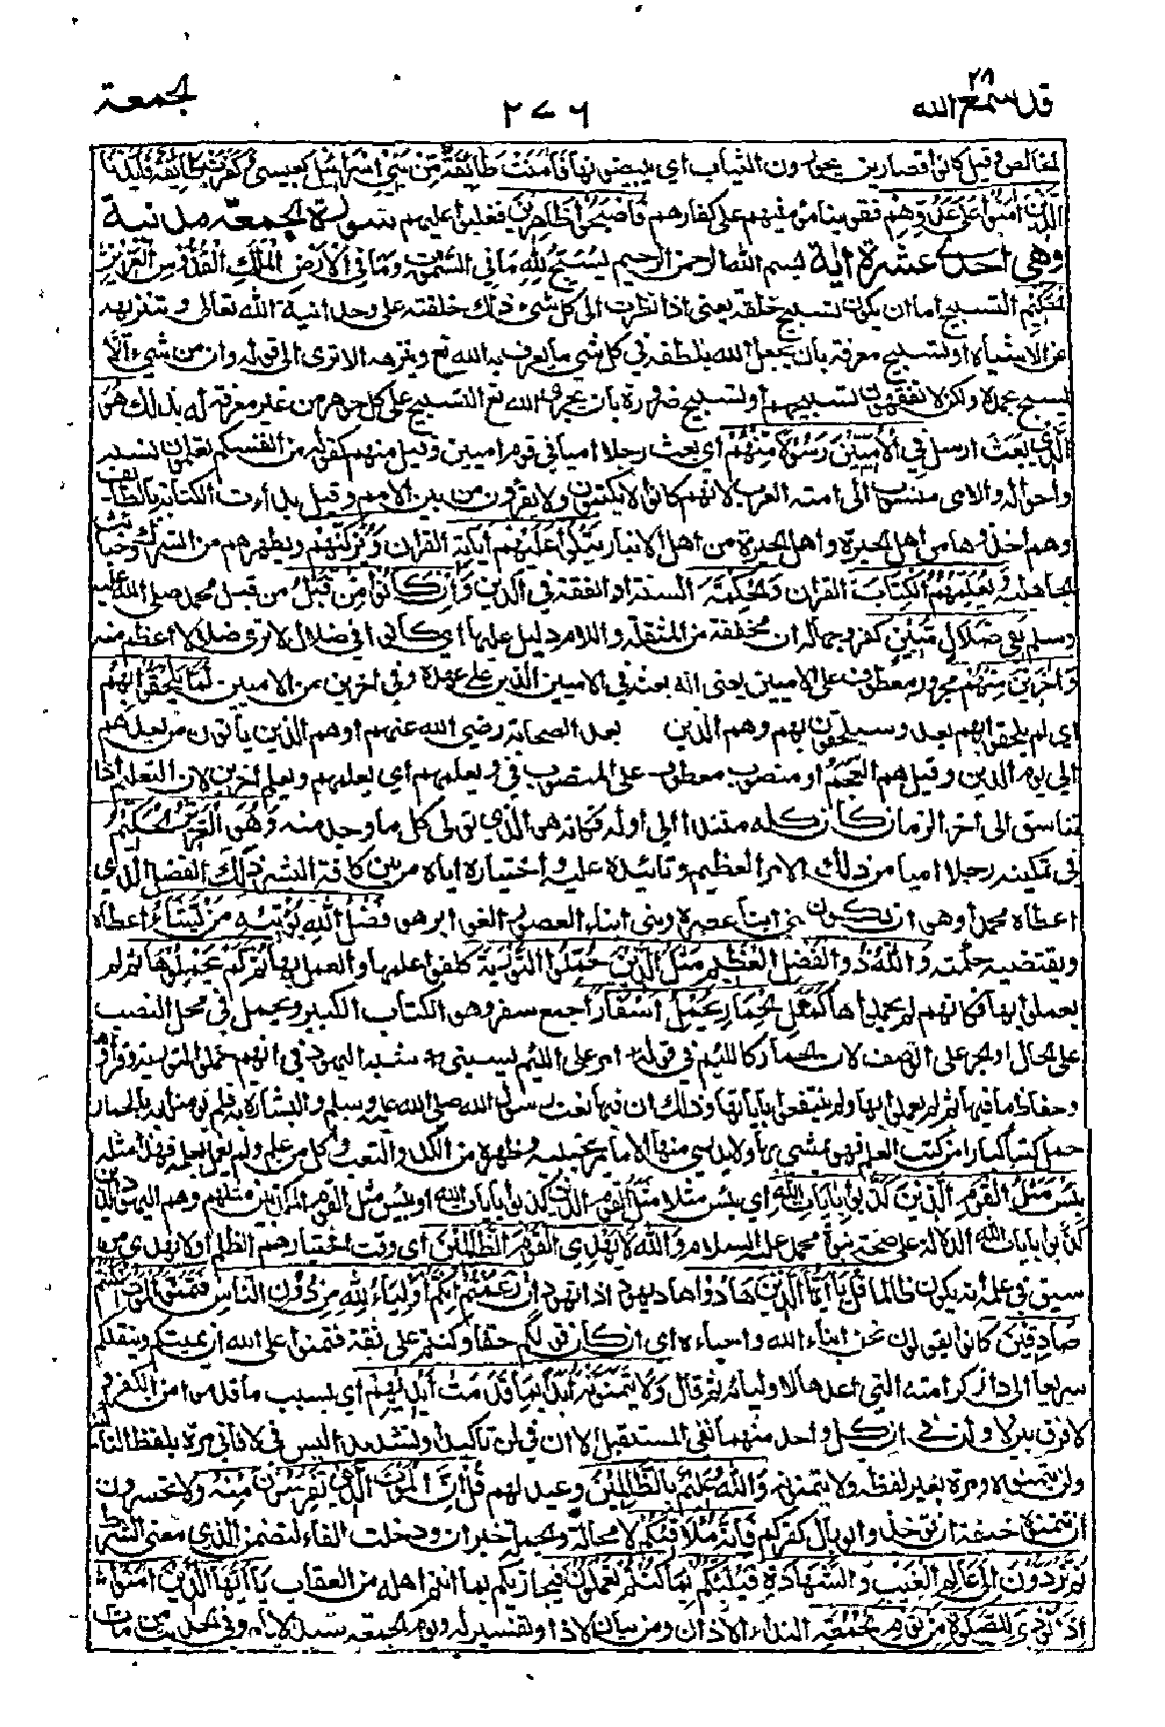 قد سمع الله ٢٨
٢٧٦
الجمعة
الخالص وقيل كانوا قصارين يحورون الثياب أي يبيضونها فَآمَنَتْ طَائِفَةٌ مِنْ بَنِي إِسْرَائِيلَ بعيسى وَكَفَرَتْ طَائِفَةٌ فَأَيَّدْنَا
الَّذِينَ آمَنُوا عَلَى عَدُوِّهِمْ فقوينا مؤمنيهم على كفارهم فَأَصْبَحُوا ظَاهِرِينَ فغلبوا عليهم سورة الجمعة مدنية
وهي احدى عشرة اية بسم الله الرحمن الرحيم يُسَبِّحُ لِلَّهِ مَا فِي السَّمَوَاتِ وَمَا فِي الْأَرْضِ الْمَلِكِ الْقُدُّوسِ الْعَزِيزِ
الْحَكِيمِ التسبيح اما ان يكون تسبيح خلقة يعنى اذا نظرت الى كل شىء دلك خلقته على وحدانية الله تعالى وتنزيهه
عن الاشباه او تسبيح معرفة بان يجعل الله بلطفه في كل شي ما يعرف به الله تع وينزهه الا ترى الى قوله وان من شيء الا
يسبح بحمده ولكن لا تفقهون تسبيحهم او تسبيح ضرورة بان يجري الله تع التسبيح على كل جوهر من غير معرفة له بذلك هُوَ
الَّذِي بَعَثَ ارسل فِي الْأُمِّيِّينَ رَسُولًا مِنْهُمْ أي بعث رجلا اميا في قوم اميين وقيل منهم كقوله من انفسكم يعلمون نسبه
واحواله والامى منسوب الى امة العرب لانهم كانوا لا يكتبون ولا يقرؤن من بين الامم وقيل بدأت الكتابة بالطائف
وهم اخذوها من اهل الحيرة واهل الحيرة من اهل الانبار يَتْلُو عَلَيْهِمْ آيَاتِهِ القران وَيُزَكِّيهِمْ ويطهرهم من الشرك وخبائث
الجاهلية وَيُعَلِّمُهُمُ الْكِتَابَ القران وَالْحِكْمَةَ السنة او الفقه في الدين وَإِنْ كَانُوا مِنْ قَبْلُ من قبل محمد صلى الله عليه
وسلم لَفِي ضَلَالٍ مُبِينٍ كفر وجهالة ان مخففة من المثقلة واللام دليل عليها أي كانوا في ضلال لا ترى ضلالا اعظم منه
وَآخَرِينَ مِنْهُمْ مجرور معطوف على الاميين يعنى انه بعثه في الاميين الذين على عهده وفي اخرين من الاميين لَمَّا يَلْحَقُوا بِهِمْ
اي لم يلحقوا بهم بعد وسيلحقون بهم وهم الذين بعد الصحابة رضي الله عنهم او هم الذين يأتون من بعدهم
الى يوم الدين وقيل هم العجم او منصوب معطوف على المنصوب في ويعلمهم أي يعلمهم ويعلم اخرين لان التعليم اذا
تناسق الى اخر الزمان كان كله مستندا الى اوله فكانه هو الذي تولى كل ما وجد منه وَهُوَ الْعَزِيزُ الْحَكِيمُ
في تمكينه رجلا اميا من ذلك الامر العظيم وتائيده عليه واختياره اياه من بين كافة البشر ذَلِكَ الفضل الذي
اعطاه محمدا وهو ان يكون نبي ابناء عصره ونبي ابناء العصور الغوابر هو فَضْلُ اللَّهِ يُؤْتِيهِ مَنْ يَشَاءُ اعطاه
ويقتضيه حكمته وَاللَّهُ ذُو الْفَضْلِ الْعَظِيمِ مَثَلُ الَّذِينَ حُمِّلُوا التَّوْرَاةَ كلفوا علمها والعمل بها ثُمَّ لَمْ يَحْمِلُوهَا ثم لم
يعملوا بها فكانهم لم يحملوها كَمَثَلِ الْحِمَارِ يَحْمِلُ أَسْفَارًا جمع سفر وهو الكتاب الكبير ويحمل في محل النصب
على الحال او الجر على الوصف لان الحمار كاللئيم في قوله امر على اللئيم يسبني شبه اليهود في انهم حملوا التورية وقراؤها
وحفاظ ما فيها ثم لم يعملوا بها ولم ينتفعوا بآياتها وذلك ان فيها نعت رسول الله صلى الله عليه وسلم والبشارة به فلم يؤمنوا به بالحمار
حمل كتبا كبارا من كتب العلم فهو يمشي بها ولا يدرى منها الا ما يمر بجنبيه وظهره من الكد والتعب وكل من علم ولم يعمل بعلمه فهذا مثله
بِئْسَ مَثَلُ الْقَوْمِ الَّذِينَ كَذَّبُوا بِآيَاتِ اللَّهِ أي بئس مثلا مثل القوم الذين كذبوا بايات الله او بئس مثل القوم المكذبين مثلهم وهم اليهود الذين
كذبوا بايات الله الدالة على صحة نبوة محمد عليه السلام وَاللَّهُ لَا يَهْدِي الْقَوْمَ الظَّالِمِينَ أي وقت اختيارهم الظلم او لا يهدي من
سبق في علمه انه يكون ظالما قُلْ يَا أَيُّهَا الَّذِينَ هَادُوا هاد يهود اذا تهود إِنْ زَعَمْتُمْ أَنَّكُمْ أَوْلِيَاءُ لِلَّهِ مِنْ دُونِ النَّاسِ فَتَمَنَّوُا الْمَوْتَ إِنْ كُنْتُمْ
صَادِقِينَ كانوا يقولون نحن ابناء الله واحباءه اي ان كان قولكم حقا وكنتم على ثقة فتمنوا على الله ان يميتكم وينقلكم
سريعا الى دار كرامته التي اعدها لاوليائه ثم قال وَلَا يَتَمَنَّوْنَهُ أَبَدًا بِمَا قَدَّمَتْ أَيْدِيهِمْ أي بسبب ما قدموا من الكفر و
لا فرق بين لا ولن في ان كل واحد منهما نفي المستقبل الا ان في لن تأكيدا وتشديدا ليس في لا فاتى مرة بلفظ التأكيد
ولن يتمنوه ومرة بغير لفظه ولا يتمنونه وَاللَّهُ عَلِيمٌ بِالظَّالِمِينَ وعيد لهم قُلْ إِنَّ الْمَوْتَ الَّذِي تَفِرُّونَ مِنْهُ ولا تجسرون
ان تتمنوه خيفة ان تؤخذوا بوبال كفركم فَإِنَّهُ مُلَاقِيكُمْ لا محالة والجملة خبر ان ودخلت الفاء لتضمن الذي معنى الشرط
ثُمَّ تُرَدُّونَ إِلَى عَالِمِ الْغَيْبِ وَالشَّهَادَةِ فَيُنَبِّئُكُمْ بِمَا كُنْتُمْ تَعْمَلُونَ فيجازيكم بما انتم اهله من العقاب يَا أَيُّهَا الَّذِينَ آمَنُوا
إِذَا نُودِيَ لِلصَّلَاةِ مِنْ يَوْمِ الْجُمُعَةِ النداء الاذان ومن بيان لاذا وتفسير له ويوم الجمعة سيد الايام وفي الحديث من مات